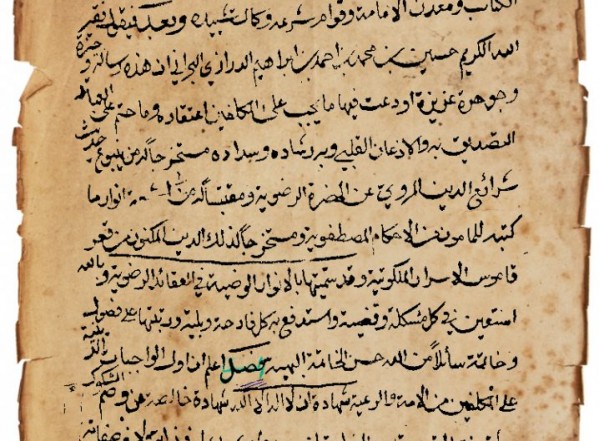 الكتاب ومعدن الامامة وقوام شرعه وكمالت شبيده وبعد فيقول فقير
الله الكريم حسين بن محمد بن احمد بن ابراهيم الدرازي البحراني ان هذه رسالة وجيزة
وجوهرة عزيزة اودعت فيها ما يجب على المكلفين اعتقاده وما حتم على العباد
التصديق به والاذعان القلبي وبرشاده وسداده مستخرجا له من ينبوع حديث
شرائع الدين المروي عن الحضرة الرضوية ومقتبسا له من اشعة انوار ما
كتبه للمامون من الاحكام المصطفوية ومستخرجا لذلك الدين المكنون من قعر
قاموس الاسرار الملكوتية وقد سميتها بالانوار الوضية في العقائد الرضوية وبالله
استعين في كل مشكلة وقضية واستدفع به كل فادحة وبلية ورتبتها على فصول
وخاتمة سائلا من الله حسن الخاتمة البهية فصل اعلم ان اول الواجبات
على المكلفين من الامة والرعية شهادة ان لا اله الا الله شهادة خالصة عن وصم